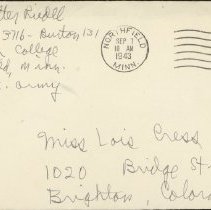 Riedell
3716 - Buxton 131
College
Minn.
Army
NORTHFIELD
SEP 1
10 AM
1943
MINN.
Miss Lois Cress
1020 Bridge St.
Brighton, Colora